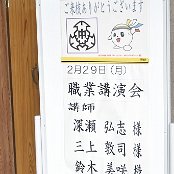 ご来校ありがとうございます
2月29日(月)
職業講演会
講師
深瀬 弘志 様
三上 敦司 様
鈴木 美咲 様